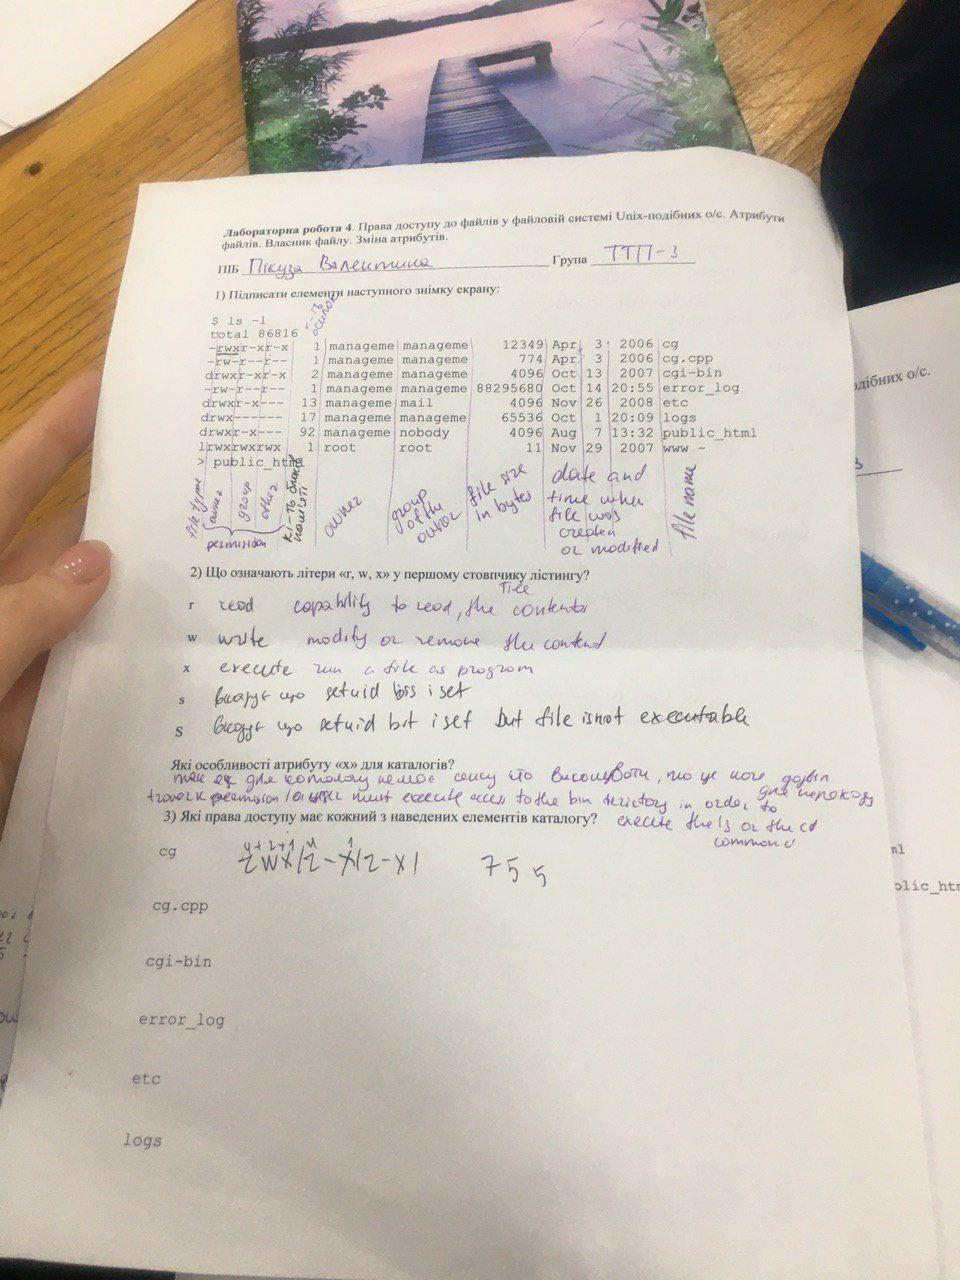 Лабораторна робота 4. Права доступу до файлів у файловій системі Unix-подібних о/с. Атрибути
файлів. Власник файлу. Зміна атрибутів.
ПІБ Пікуза Валентина Група ТТП-3
1) Підписати елементи наступного знімку екрану:
$ ls -l
total 86816
-rwxr-xr-x 1 manageme manageme 12349 Apr 3 2006 cg
-rw-r--r-- 1 manageme manageme 774 Apr 3 2006 cg.cpp
drwxr-xr-x 2 manageme manageme 4096 Oct 13 2007 cgi-bin
-rw-r--r-- 1 manageme manageme 88295680 Oct 14 20:55 error_log
drwxr-x--- 13 manageme mail 4096 Nov 26 2008 etc
drwx------ 17 manageme manageme 65536 Oct 1 20:09 logs
drwxr-x--- 92 manageme nobody 4096 Aug 7 13:32 public_html
lrwxrwxrwx 1 root root 11 Nov 29 2007 www -
> public_html
file type
owner
group
other
permission
owner
group of the owner
file size in bytes
date and
time when
file was
created
or modified
file name
2) Що означають літери «r, w, x» у першому стовпчику лістингу?
file
r read capability to read, the contents
w write modify or remove the content
x execute run a file as program
s вказує що setuid bit is set
S вказує що setuid bit is set but file is not executable
Які особливості атрибуту «x» для каталогів?
так як для каталогу немає сенсу його, то це дозвіл
для переходу
permission must execute access to the bin in order to
3) Які права доступу має кожний з наведених елементів каталогу?
execute the ls or the cd
command
cg 4+2+1 4 1
rwx/r-x/r-x/ 755
cg.cpp
cgi-bin
error_log
etc
logs
одібних о/с.